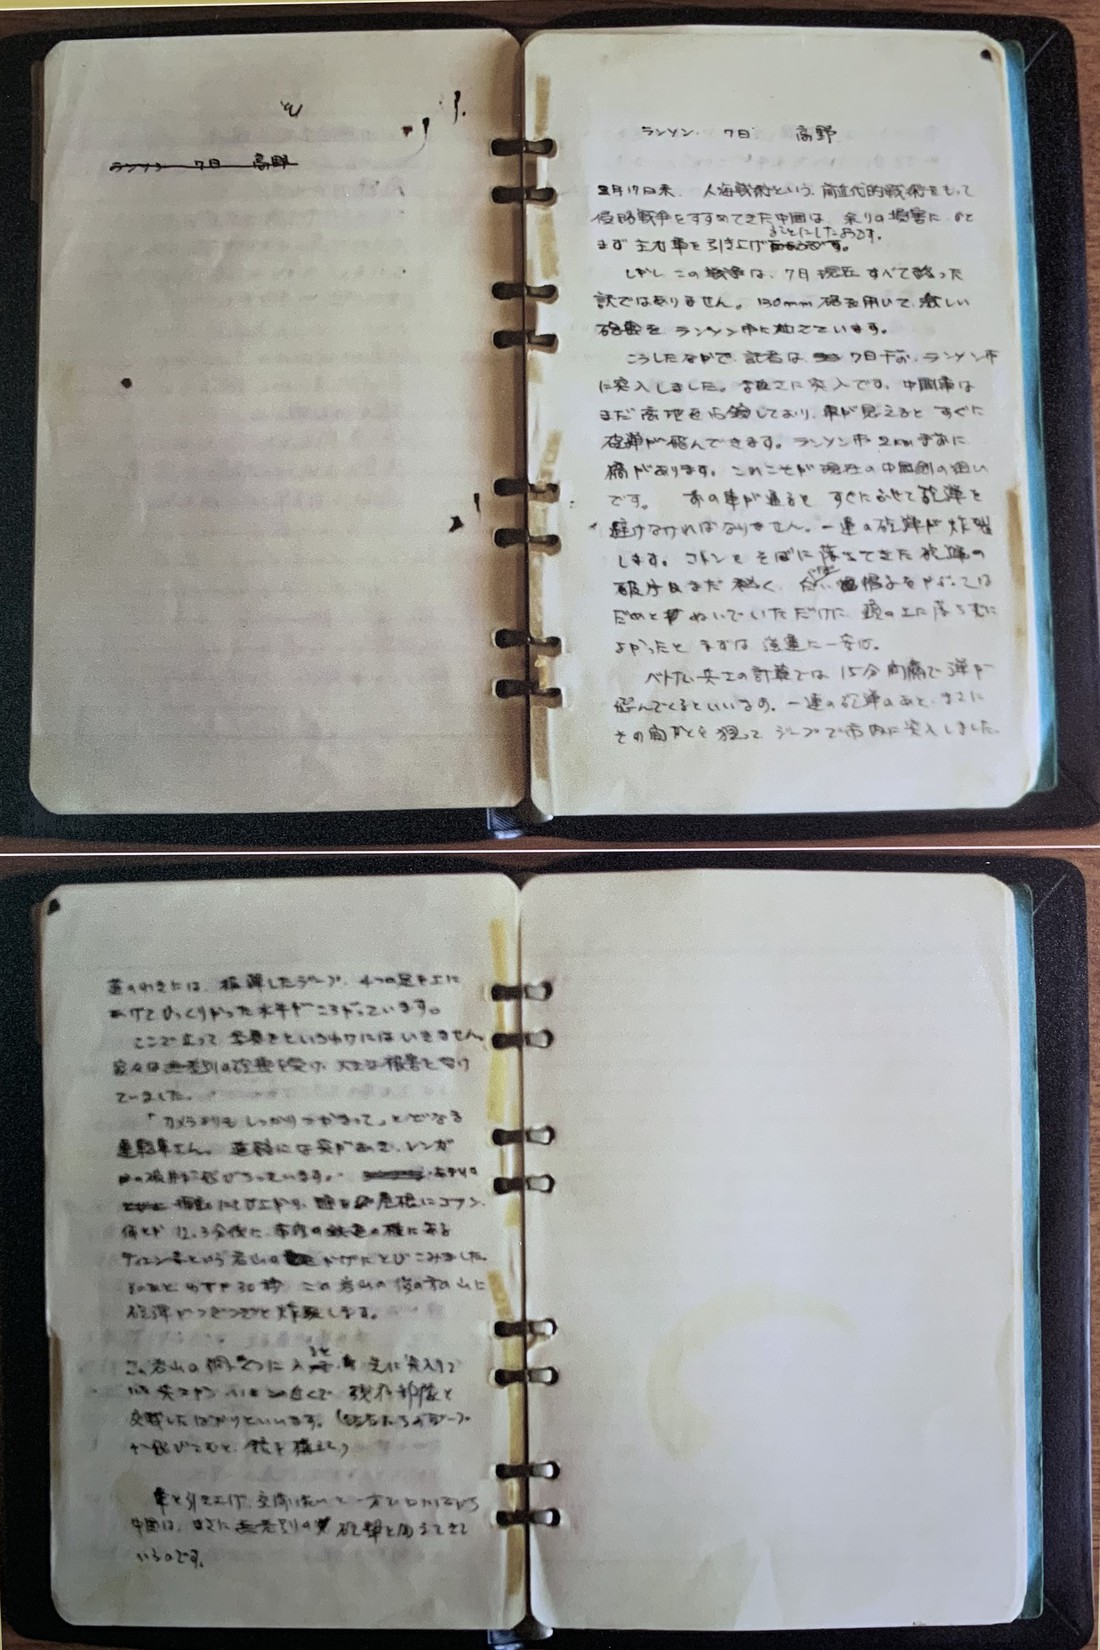 ランソン 7日 高野
ランソン 7日 高野
二月17日来、人海戦術という、前近代的戦術をもって
侵略戦争をすすめてきた中国は、余りの損害に、ひと
まず主力軍を引き上げることにしたようです。
しかしこの戦争は、7日現在すべて終った
訳ではありません。130mm砲を用いて、激しい
砲撃をランソン市に加えています。
こうしたなかで、記者は、7日午前、ランソン市
に突入しました。まさに突入です。中国軍は
まだ高地を占領しており、車が見えるとすぐに
砲弾が飛んできます。ランソン市2km手前に
橋があります。これこそが現在の中国側の狙い
です。前の車が通るとすぐにふせて砲弾を
避けなければなりません。一連の砲弾が炸裂
します。コトンとそばに落ちてきた砲弾の
破片はまだ熱く、帽子をかぶっては
だめとぬいでいただけに、頭の上に落ちずに
よかったとまずは幸運に一安心。
ベトナム兵士の計算では15分間隔で弾が
飛んでくるといいます。一連の砲弾のあと、まさに
その間げきを狙ってジープで市内に突入しました。
道のわきには、被弾したジープ、4つの足を上に
あげてひっくりかった水牛がころがっています。
ここで立って写真をというわけにはいきません。
家々は無差別の砲撃を受け、大きな被害を受け
ていました。
「カメラよりもしっかりつかまって」とどなる
運転手さん。道路には穴があき、レンガ
の破片が飛びちっています。
にとび上がり、頭を屋根にゴツン。
何とか12、3分後に、市内の
ティエンという岩山のかげにとびこみました。
そのあとわずか30秒、この岩山の後の方の山に
砲弾がつぎつぎと炸裂します。
この岩山の洞くつに入ると、先に突入して
近くで残存部隊と
交戦したばかりといいます。(記者たちのジープ
が飛びこむと、銃を構えた)
軍を引き上げ、交渉したいと一方でいいながら
中国は、まさに無差別の砲撃を加えてきて
いるのです。